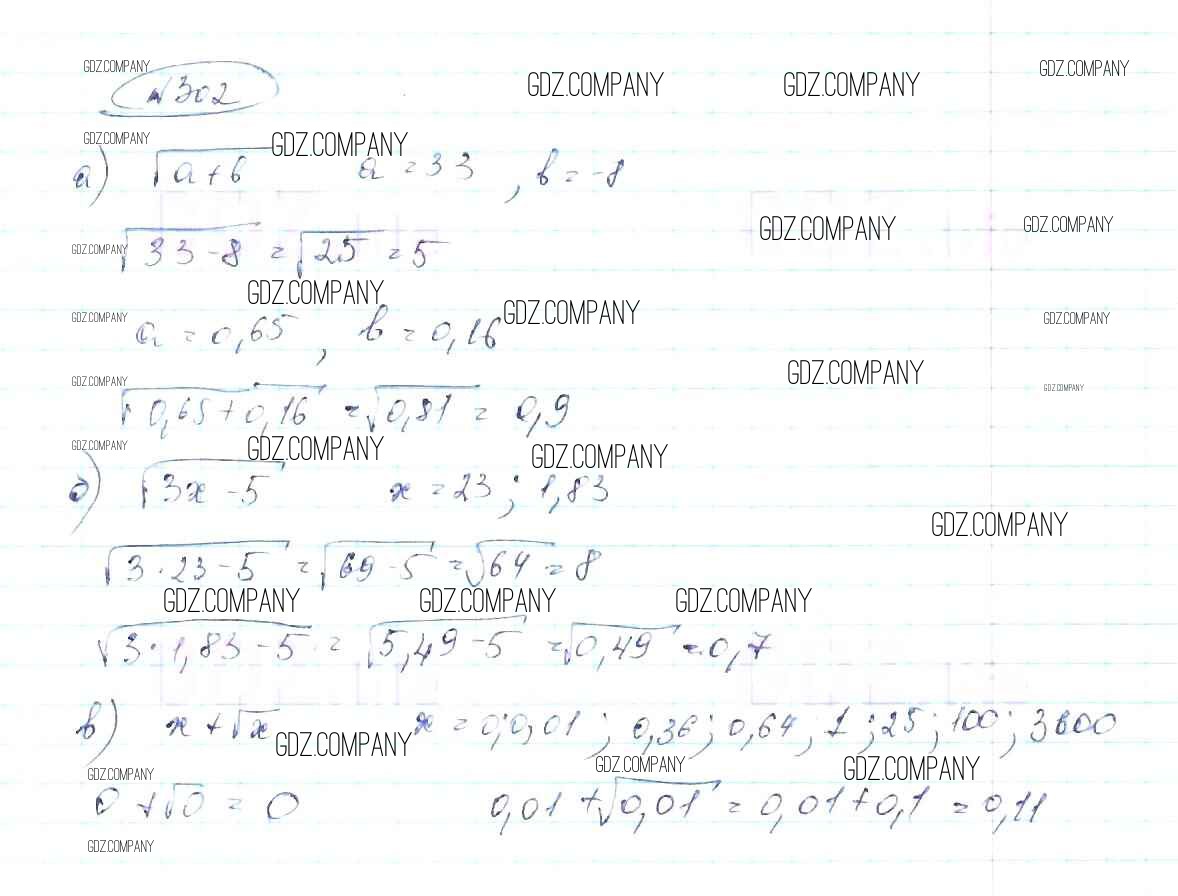 GDZ.COMPANY GDZ.COMPANY GDZ.COMPANY GDZ.COMPANY
№ 302
GDZ.COMPANY GDZ.COMPANY
а) √a + b a = 33, b = -8
GDZ.COMPANY GDZ.COMPANY
GDZ.COMPANY √33 - 8 = √25 = 5
GDZ.COMPANY GDZ.COMPANY
GDZ.COMPANY GDZ.COMPANY
a = 0,65, b = 0,16
GDZ.COMPANY GDZ.COMPANY GDZ.COMPANY
√0,65 + 0,16 = √0,81 = 0,9
GDZ.COMPANY GDZ.COMPANY GDZ.COMPANY
б) √3x - 5 x = 23; 1,83
GDZ.COMPANY
√3 · 23 - 5 = √69 - 5 = √64 = 8
GDZ.COMPANY GDZ.COMPANY GDZ.COMPANY
√3 · 1,83 - 5 = √5,49 - 5 = √0,49 = 0,7
в) x + √x x = 0; 0,01; 0,36; 0,64; 1; 25; 100; 3600
GDZ.COMPANY
GDZ.COMPANY GDZ.COMPANY GDZ.COMPANY
0 + √0 = 0 0,01 + √0,01 = 0,01 + 0,1 = 0,11
GDZ.COMPANY